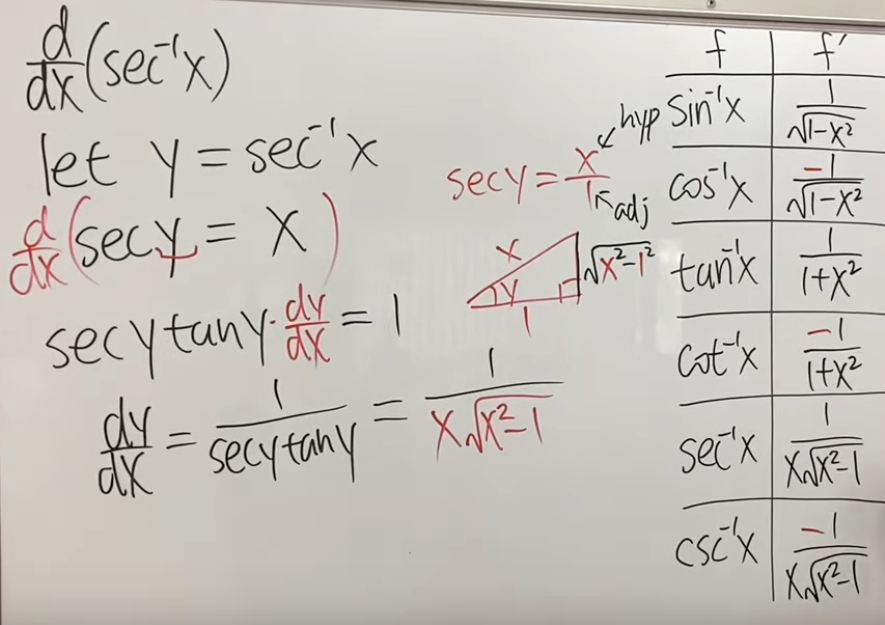 d/dx (sec⁻¹x)
let y = sec⁻¹ x
d/dx (sec y = x)
sec y tan y · dy/dx = 1
dy/dx = 1/(sec y tan y) = 1/(x√(x²-1))
sec y = x/1
hyp
adj
x
y
1
√(x²-1²)
f | f'
sin⁻¹x | 1/√(1-x²)
cos⁻¹x | -1/√(1-x²)
tan⁻¹x | 1/(1+x²)
cot⁻¹x | -1/(1+x²)
sec⁻¹x | 1/(x√(x²-1))
csc⁻¹x | -1/(x√(x²-1))